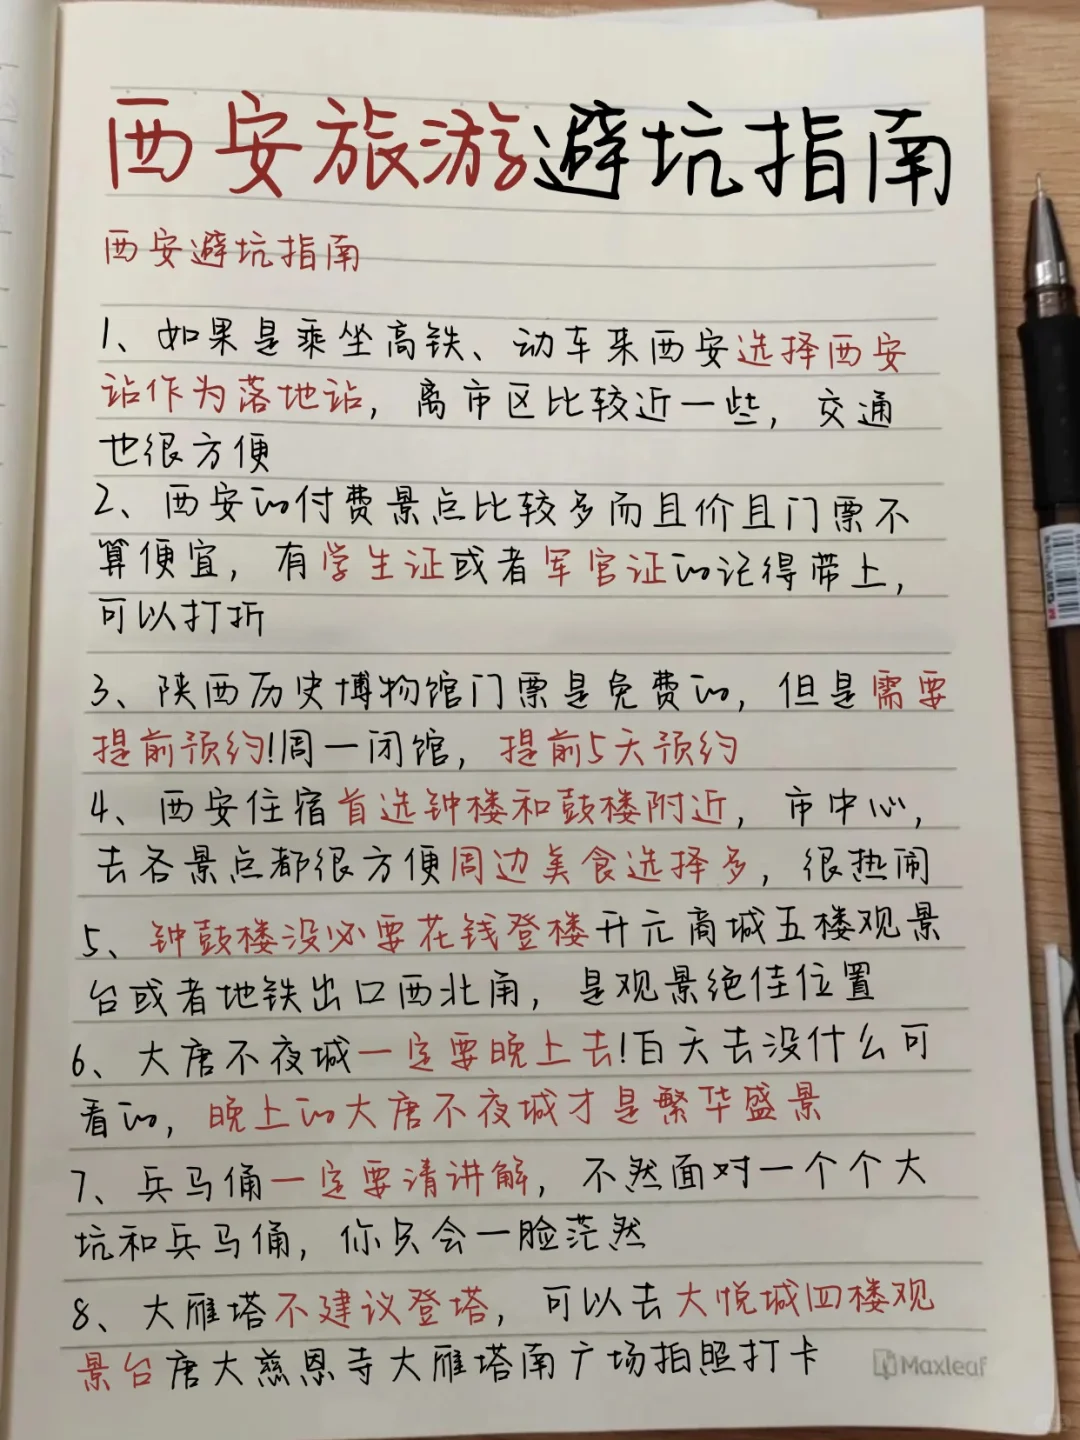 西安旅游避坑指南
西安避坑指南
1、如果是乘坐高铁、动车来西安选择西安
站作为落地站，离市区比较近一些，交通
也很方便
2、西安的付费景点比较多而且价且门票不
算便宜，有学生证或者军官证的记得带上，
可以打折
3、陕西历史博物馆门票是免费的，但是需要
提前预约！周一闭馆，提前5天预约
4、西安住宿首选钟楼和鼓楼附近，市中心，
去各景点都很方便周边美食选择多，很热闹
5、钟鼓楼没必要花钱登楼开元商城五楼观景
台或者地铁出口西北角，是观景绝佳位置
6、大唐不夜城一定要晚上去！白天去没什么可
看的，晚上的大唐不夜城才是繁华盛景
7、兵马俑一定要请讲解，不然面对一个个大
坑和兵马俑，你只会一脸茫然
8、大雁塔不建议登塔，可以去大悦城四楼观
景台唐大慈恩寺大雁塔南广场拍照打卡
Maxleaf